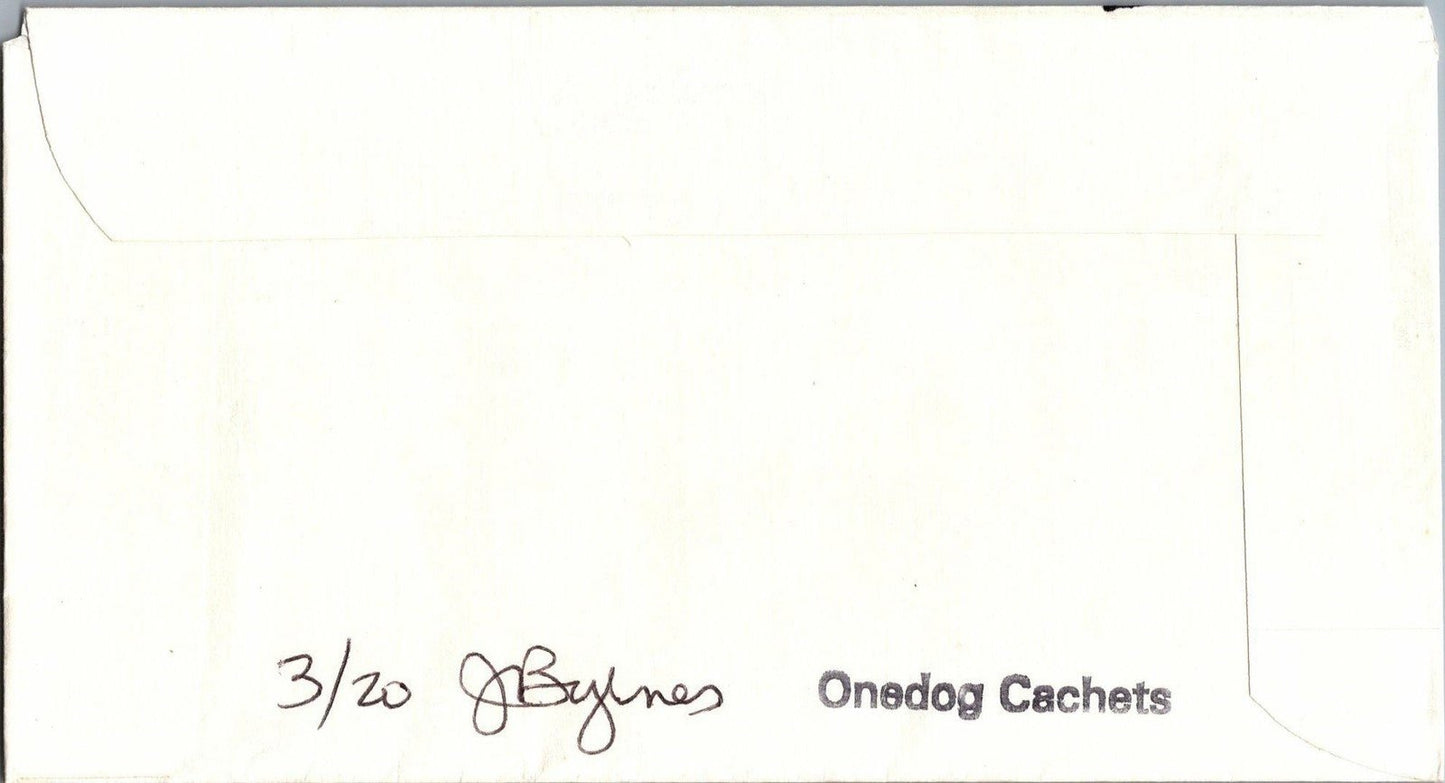 3/20 JByrnes Onedog Cachets